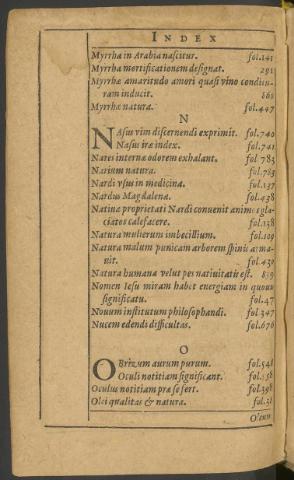 INDEX
Myrrha in Arabia nascitur. fol.141
Myrrha mortificationem designat. 291
Myrrhæ amaritudo amori quasi vino condien-
ram inducit. 860
Myrrhæ natura. fol.447
N
NAsus vim discernendi exprimit. fol.740
Nasus iræ index. fol.741
Nares internæ odorem exhalant. fol 783
Narium natura. fol.783
Nardi vsus in medicina. fol.137
Nardus Magdalena. fol.438
Natiuæ proprietati Nardi conuenit
ciatos calefacere. fol.138
Natura mulierum imbecillium. fol.109
Natura malum punicam arborem spinis arma-
uit. fol.430
Natura humana velut pes natiuitatis est. 819
Nomen Iesu miram habet energiam in
significatu. fol.47
Nouum institutum philosophandi. fol.347
Nucem edendi difficultas. fol.676
O
OBrizum aurum purum. fol.548
Oculi notitiam significant. fol.156
Oculus notitiam præ se fert. fol.398
Olei qualitas & natura.